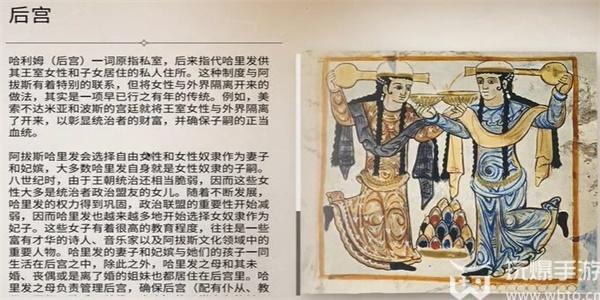 后宫
哈利姆（后宫）一词原指私室，后来指代哈里发供
其王室女性和子女居住的私人住所。这种制度与阿
拔斯有着特别的联系，但将女性与外界隔离开来的
做法，其实是一项早已行之有年的传统。例如，美
索不达米亚和波斯的宫廷就将王室女性与外界隔离
了开来，以彰显统治者的财富，并确保子嗣的正当
血统。
阿拔斯哈里发会选择自由女性和女性奴隶作为妻子
和妃嫔，大多数哈里发自身就是女性奴隶的子嗣。
八世纪时，由于王朝统治还相当脆弱，因而这些女
性大多是统治者政治盟友的女儿。随着不断发展，
哈里发的权力得到巩固，政治联盟的重要性开始减
弱，因而哈里发也越来越多地开始选择女奴隶作为
妃子。这些女子有着很高的教育程度，往往是一些
富有才华的诗人、音乐家以及阿拔斯文化领域中的
重要人物。哈里发的妻子和妃嫔与她们的孩子一同
生活在后宫之中，除此之外，哈里发之母和其未
婚、丧偶或是离了婚的姐妹也都居住在后宫里。哈
里发之母负责管理后宫，确保后宫（配有仆从、教
玩爆手游